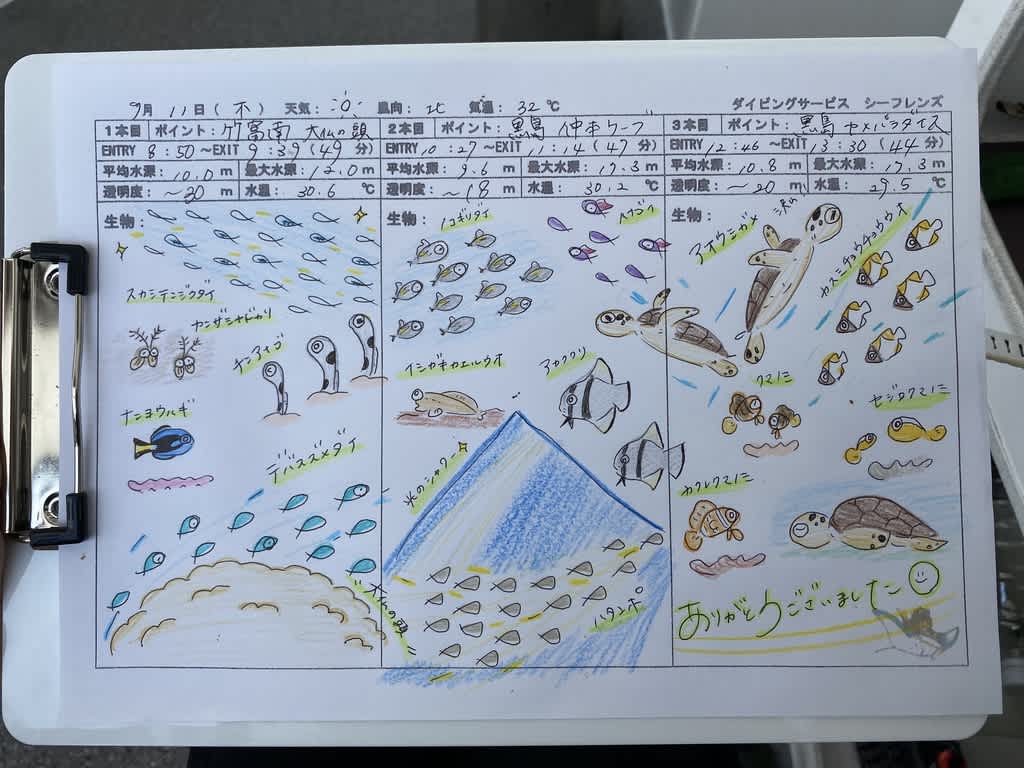 9月 11日(木) 天気: 風向: 北 気温: 32℃ ダイビングサービス シーフレンズ
1本目 ポイント: 竹富南 大仏の頭
ENTRY 8:50 ~EXIT 9:39 (49分)
平均水深: 10.0m 最大水深: 12.0m
透明度: ~30m 水温: 30.6℃
生物:
スカシテンジクダイ
ヤンザシヤドカリ
チンアナゴ
ナンヨウハギ
デバスズメダイ
"大仏の頭"
2本目 ポイント: 黒島 仲本ケーブ
ENTRY 10:27 ~EXIT 11:14 (47分)
平均水深: 9.6m 最大水深: 17.3m
透明度: ~18m 水温: 30.2℃
生物:
ノコギリダイ
ハナゴイ
インガキカエルウオ
アカククリ
光のシャワー
ハタンポ
3本目 ポイント: 黒島 カメパラダイス
ENTRY 12:46 ~EXIT 13:30 (44分)
平均水深: 10.8m 最大水深: 17.3m
透明度: ~20m 水温: 29.5℃
生物:
アオウミガメ
カスミチョウチョウウオ
クマノミ
セジロクマノミ
カクレクマノミ
ありがとうございました